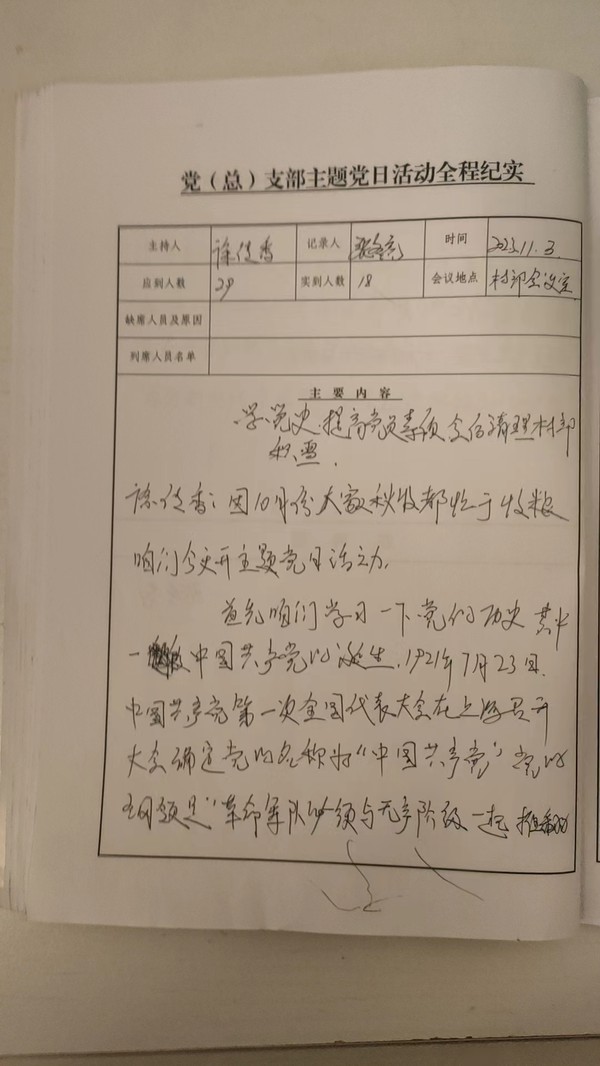 党（总）支部主题党日活动全程纪实
主持人 徐传香 记录人 时间 2023.11.3.
应到人数 29 实到人数 18 会议地点 村部会议室
缺席人员及原因
列席人员名单
主要内容
学党史.提高党员素质会后清理村部
积雪.
徐传香：因10月份大家秋收都忙于收粮
咱们今天开主题党日活动.
首先咱们学习一下党的历史 其中
一 中国共产党的诞生.1921年7月23日.
中国共产党第一次全国代表大会在上海召开
大会确定党的名称为“中国共产党”党的
纲领是“革命军队必须与无产阶级一起 推翻